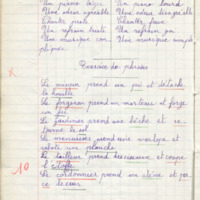 Un piano léger Un piano lourd
Une odeur agréable Une odeur désagréable
Chanter juste Chanter faux
Un refrain triste Un refrain gai
Une musique com- Une musique simple
pliquée.
Exercice de phrases
Le mineur prend un pic et détache
la houille
Le forgeron prend un marteau et forge
un fer
Le jardinier prend une bêche et re-
tourne le sol
Le menuisier prend une varlope et
rabote une planche
Le tailleur prend des ciseaux et coupe
l'étoffe
10
Le cordonnier prend un alène et per-
ce le cuir